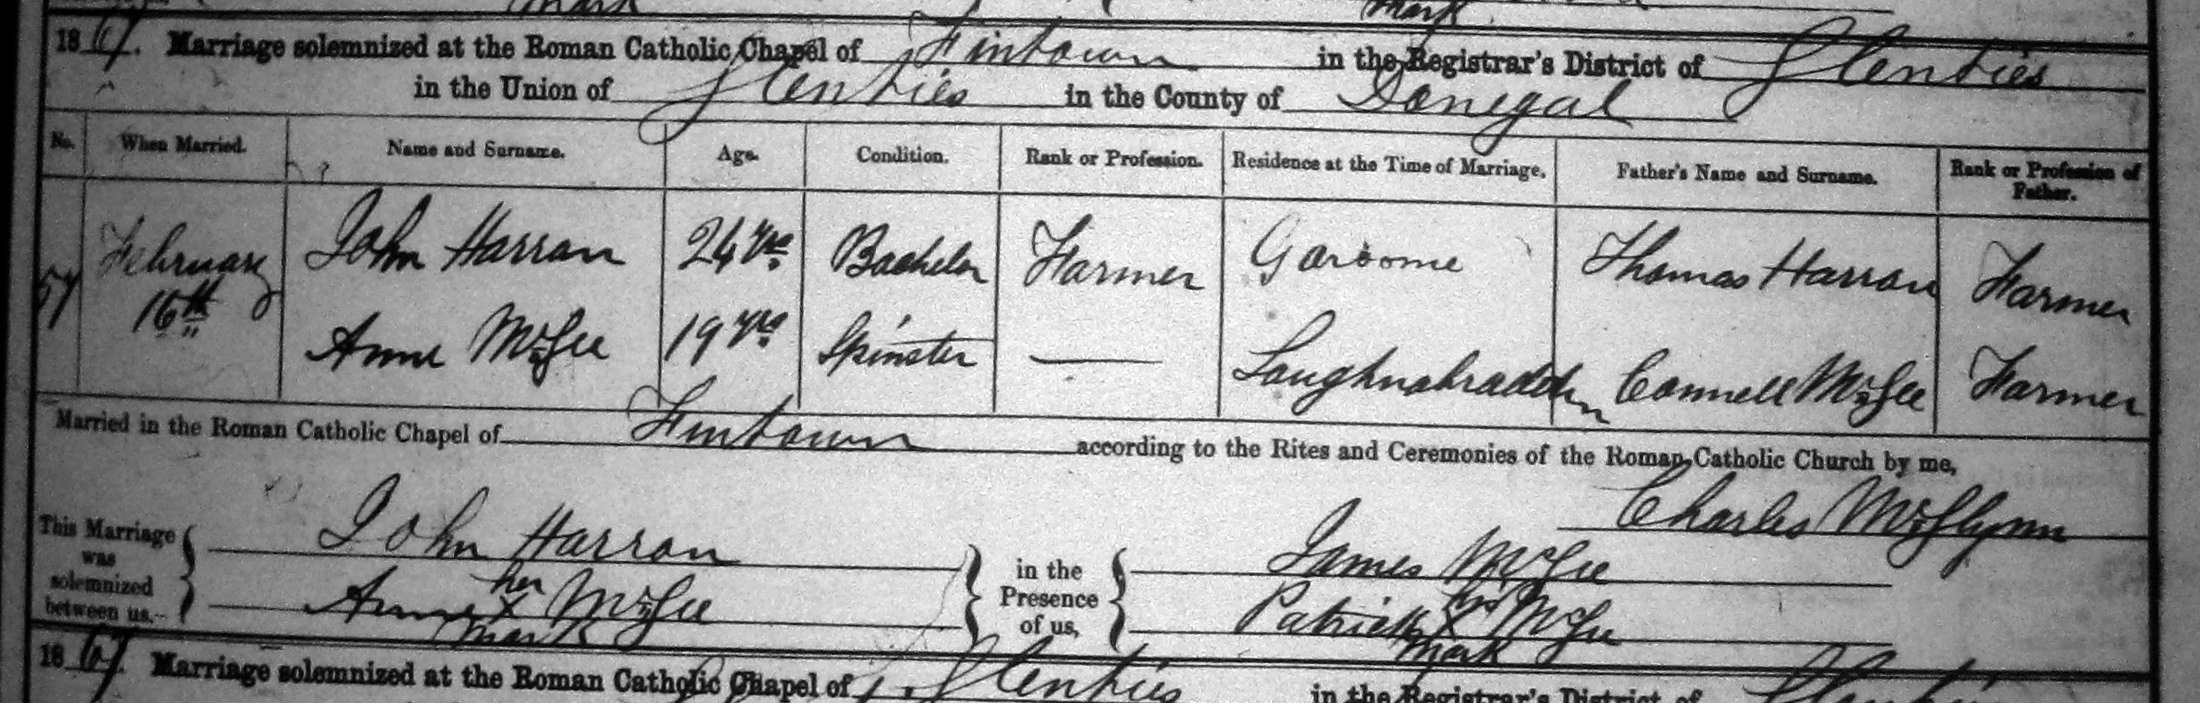 mark mark
1867. Marriage solemnized at the Roman Catholic Chapel of Fintown in the Registrar's District of Glenties
in the Union of Glenties in the County of Donegal
No. When Married. Name and Surname. Age. Condition. Rank or Profession. Residence at the Time of Marriage. Father's Name and Surname. Rank or Profession of Father.
57 February 16th John Harran 24 yrs Bachelor Farmer Thomas Harran Farmer
Anne McGee 19 yrs Spinster — Loughnabradden Connell McGee Farmer
Married in the Roman Catholic Chapel of Fintown according to the Rites and Ceremonies of the Roman Catholic Church by me,
Charles McGlynn
This Marriage was solemnized between us,
John Harran
Anne her X mark McGee
in the Presence of us,
James McGee
Patrick his X mark McGee
1867. Marriage solemnized at the Roman Catholic Chapel of Glenties in the Registrar's District of Glenties